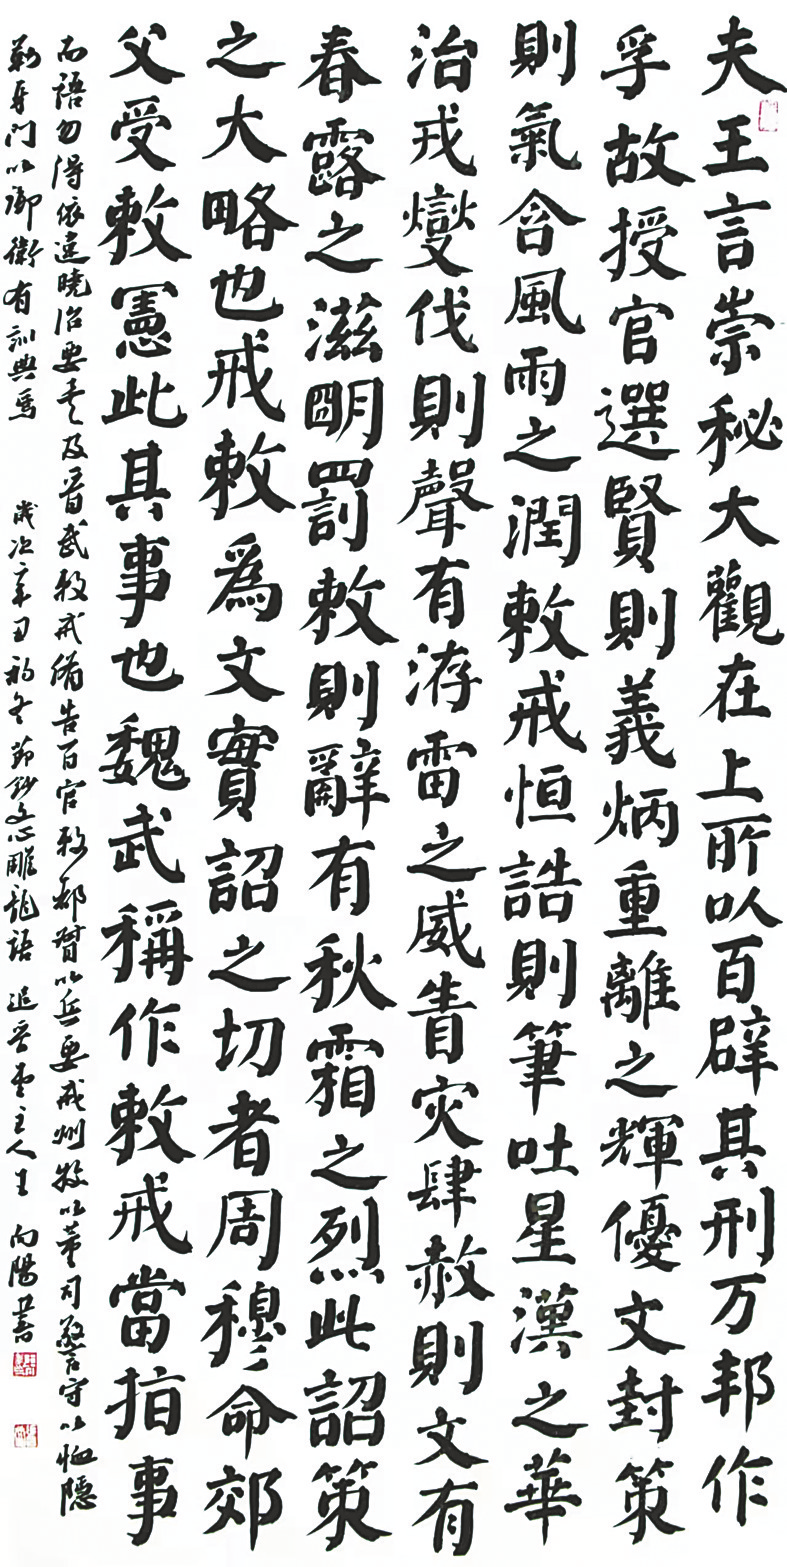 夫王言崇秘大觀在上所以百辟其刑万邦作
孚故授官選賢則義炳重離之輝優文封策
則氣含風雨之潤敕戒恒誥則筆吐星漢之華
治戎燮伐則聲有洊雷之威眚灾肆赦則文有
春露之滋明罰敕則辭有秋霜之烈此詔策
之大略也戒敕爲文實詔之切者周穆命郊
父受敕憲此其事也魏武稱作敕戒當指事
而語勿得依違曉治要矣及晉武敕戒備告百官敕都督以兵要戒州牧以董司警守以恤隱
勒牙門以御衛有訓典焉 歲次辛丑初冬節鈔文心雕龍語 追主人王向陽書